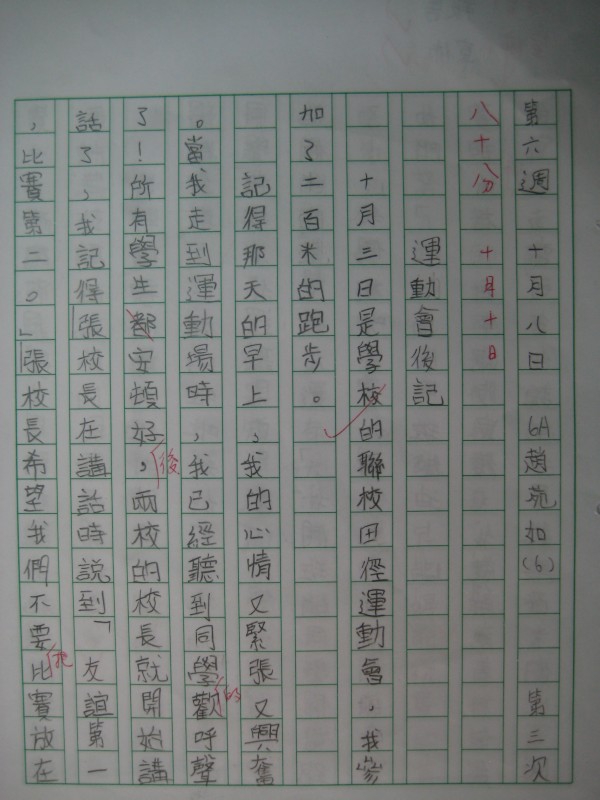 第六週 十月八日 6A趙苑如(6) 第三次
八十分 十月十日
運動會後記
十月三日是學校的聯校田徑運動會,我參
加了二百米的跑步。
記得那天的早上,我的心情又緊張又興奮
。當我走到運動場時,我已經聽到同學的歡呼聲
了!所有學生都安頓好後,兩校的校長就開始講
話了,我記得張校長在講話時說到「友誼第一
,比賽第二。」張校長希望我們不要把比賽放在